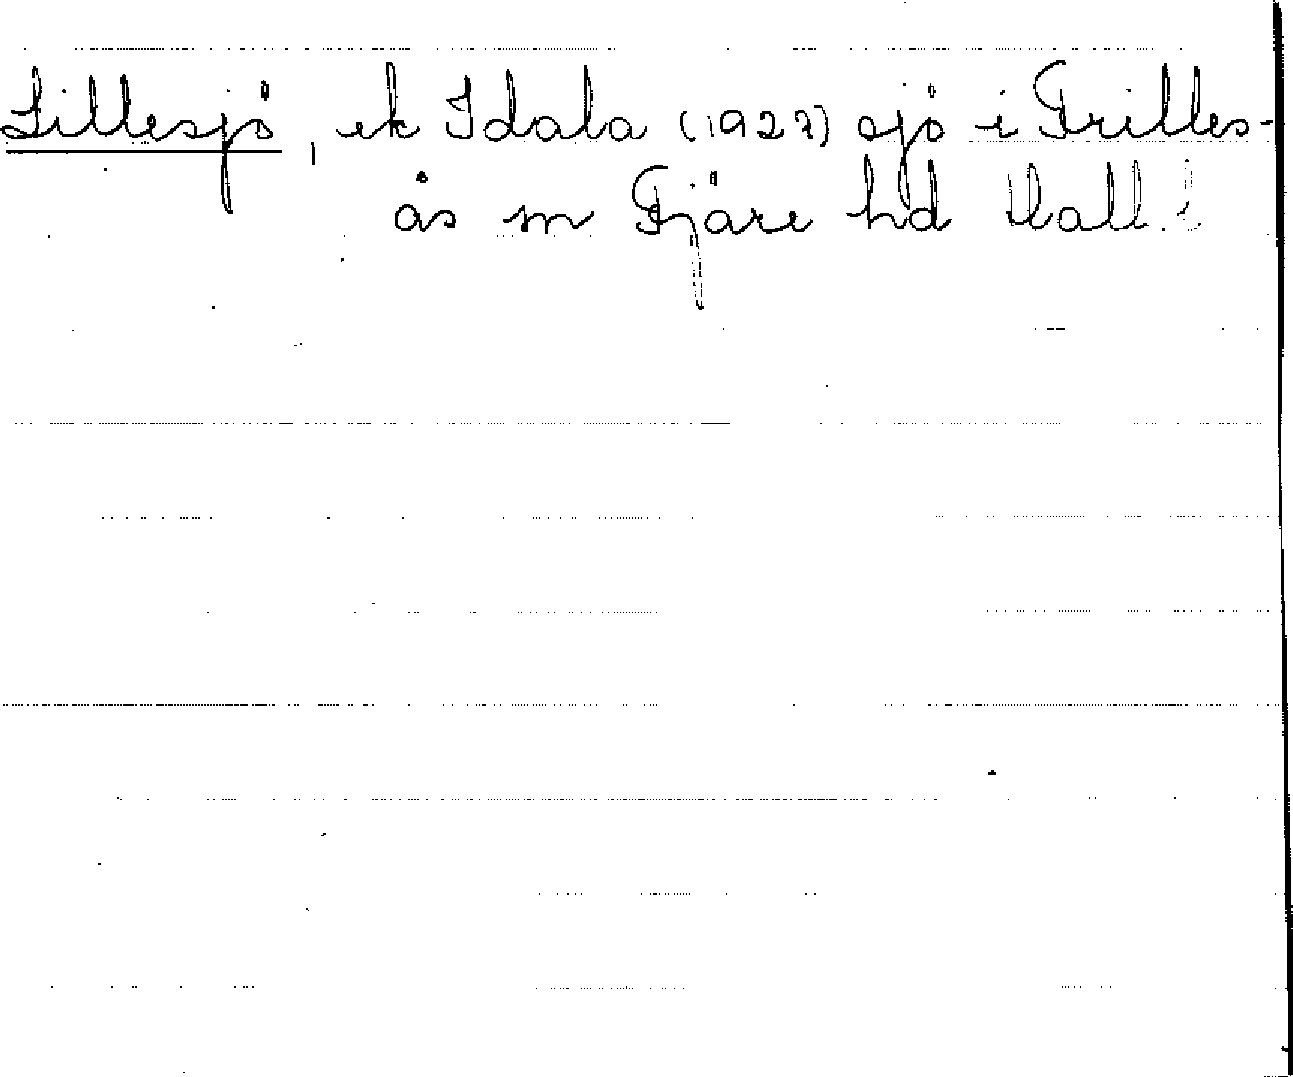 Lillesjö, ek Idala (1927) sjö i Frilles-
ås sn Fjäre hd Hall